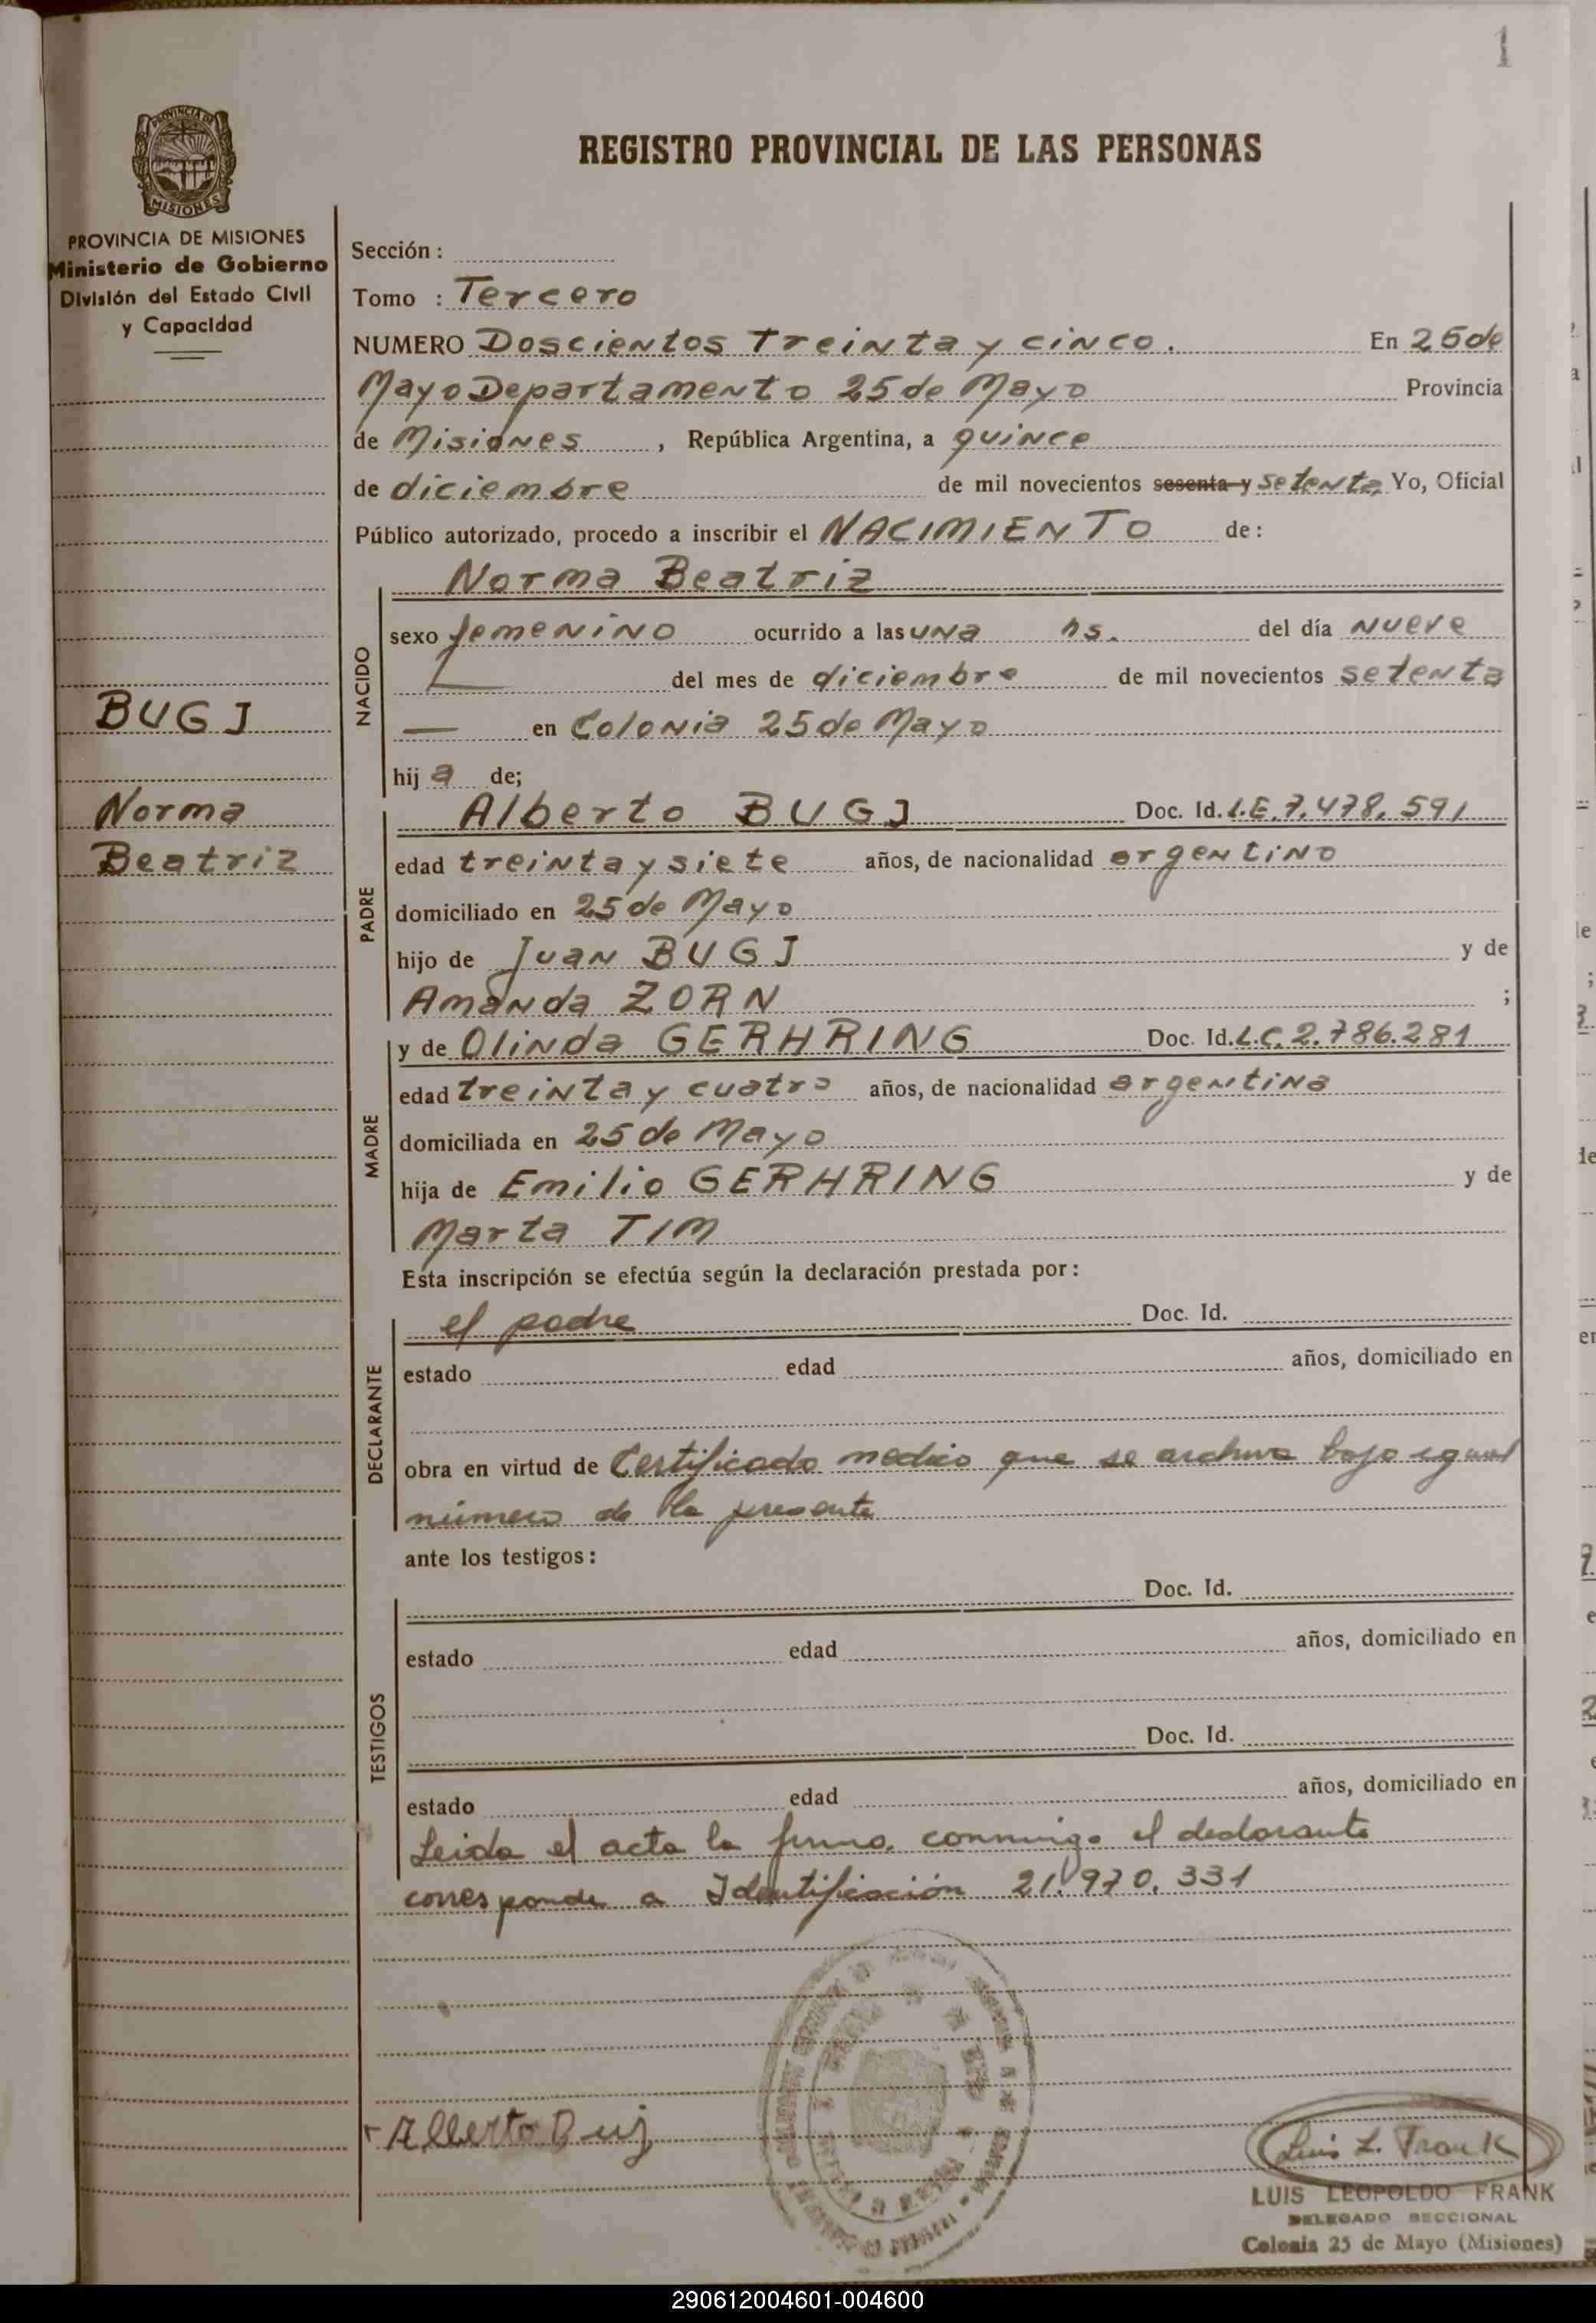 1
REGISTRO PROVINCIAL DE LAS PERSONAS
PROVINCIA DE
MISIONES
PROVINCIA DE MISIONES
Ministerio de Gobierno
División del Estado Civil
y Capacidad
BUGJ
Norma
Beatriz
Sección :
Tomo : Tercero
NUMERO Doscientos Treinta y cinco. En 25 de
Mayo Departamento 25 de Mayo Provincia
de Misiones, República Argentina, a quince
de diciembre de mil novecientos sesenta y setenta Yo, Oficial
Público autorizado, procedo a inscribir el NACIMIENTO de:
NACIDO
Norma Beatriz
sexo femenino ocurrido a las una hs. del día nueve
del mes de diciembre de mil novecientos setenta
— en Colonia 25 de Mayo
hija de;
PADRE
Alberto BUGJ Doc. Id. L.E. 7.478.591
edad treinta y siete años, de nacionalidad argentino
domiciliado en 25 de Mayo
hijo de Juan BUGJ y de
Amanda ZORN ;
MADRE
y de Olinda GERHRING Doc. Id. L.C. 2.786.281
edad treinta y cuatro años, de nacionalidad argentina
domiciliada en 25 de Mayo
hija de Emilio GERHRING y de
Marta TIM
Esta inscripción se efectúa según la declaración prestada por:
DECLARANTE
el padre Doc. Id.
estado edad años, domiciliado en
obra en virtud de Certificado medico que se archiva bajo igual
número de la presente
ante los testigos:
TESTIGOS
Doc. Id.
estado edad años, domiciliado en
Doc. Id.
estado edad años, domiciliado en
Leida el acta la firma conmigo el declarante
corresponde a Identificación 21.970.331
Alberto Buj
Luis L. Frank
LUIS LEOPOLDO FRANK
DELEGADO SECCIONAL
Colonia 25 de Mayo (Misiones)
290612004601-004600